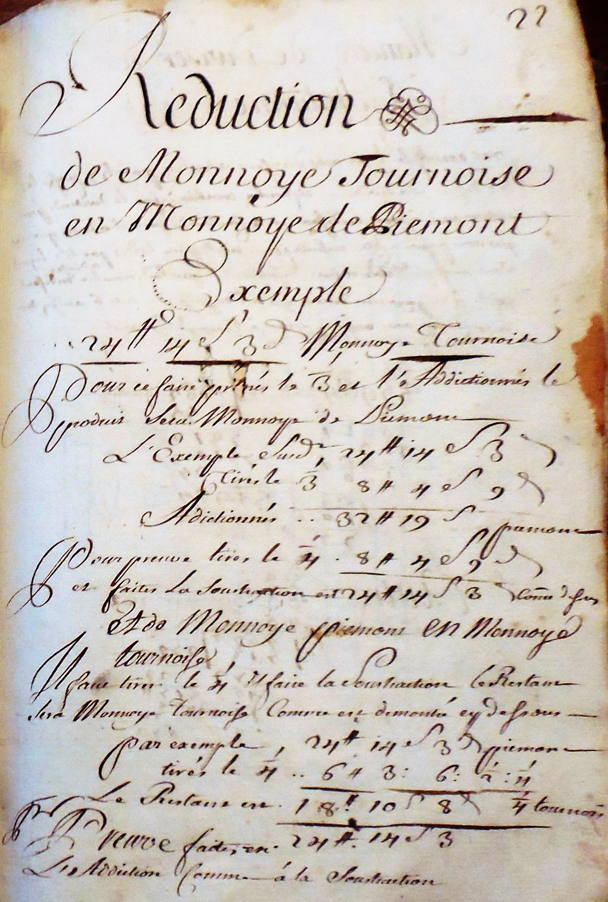 22
Reduction
de Monnoye Tournoise
en Monnoye de Piemont
Exemple
24 ₶ 14 s 3 d Monnoye Tournoise
Pour ce faire prenés le 1/3 et l'Addictionnés le
produit sera Monnoye de Piemont
L'Exemple susd. 24 ₶ 14 s 3 d
Tirés le 1/3 8 ₶ 4 s 9 d
Adictionnés .. 32 ₶ 19 s piemont
Pour preuve tires le 1/4 . 8 ₶ 4 s 9 d
et faites La Soustraction est 24 ₶ 14 s 3 d
et de Monnoye piemont en Monnoye
tournoise
Il faut tirer le 1/4 et faire la Soustraction le Restant
sera Monnoye Tournoise Comme est demontré cy dessous
par exemple, 24 ₶ 14 s 3 d piemont
tirés le 1/4 .. 6 ₶ 3 : 6 : 1/2 : 1/4
Le Restant est . 18 ₶ 10 s 8 d 1/4 tournois
Preuve faite, en . 24 ₶ . 14 s 3
L'Addiction Comme à la Soustraction